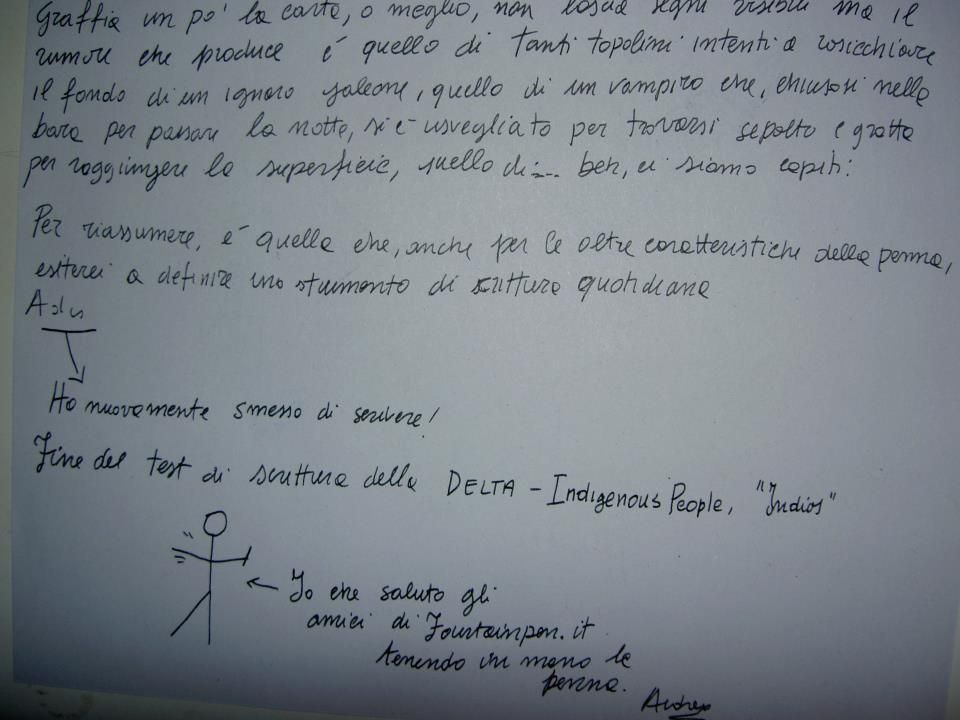 Graffia un po' la carta, o meglio, non lascia segni visibili ma il
rumore che produce è quello di tanti topolini intenti a rosicchiare
il fondo di un ignaro galeone, quello di un vampiro che, chiusosi nella
bara per passare la notte, si è risvegliato per trovarsi sepolto e gratta
per raggiungere la superficie, quello di... beh, ci siamo capiti!
Per riassumere, è quella che, anche per le altre caratteristiche della penna,
esiterei a definire uno strumento di scrittura quotidiana
Ho nuovamente smesso di scrivere!
Fine del test di scrittura della DELTA - Indigenous People, "Indios"
Io che saluto gli
amici di Fountainpen.it
tenendo in mano la
penna.
Andrea